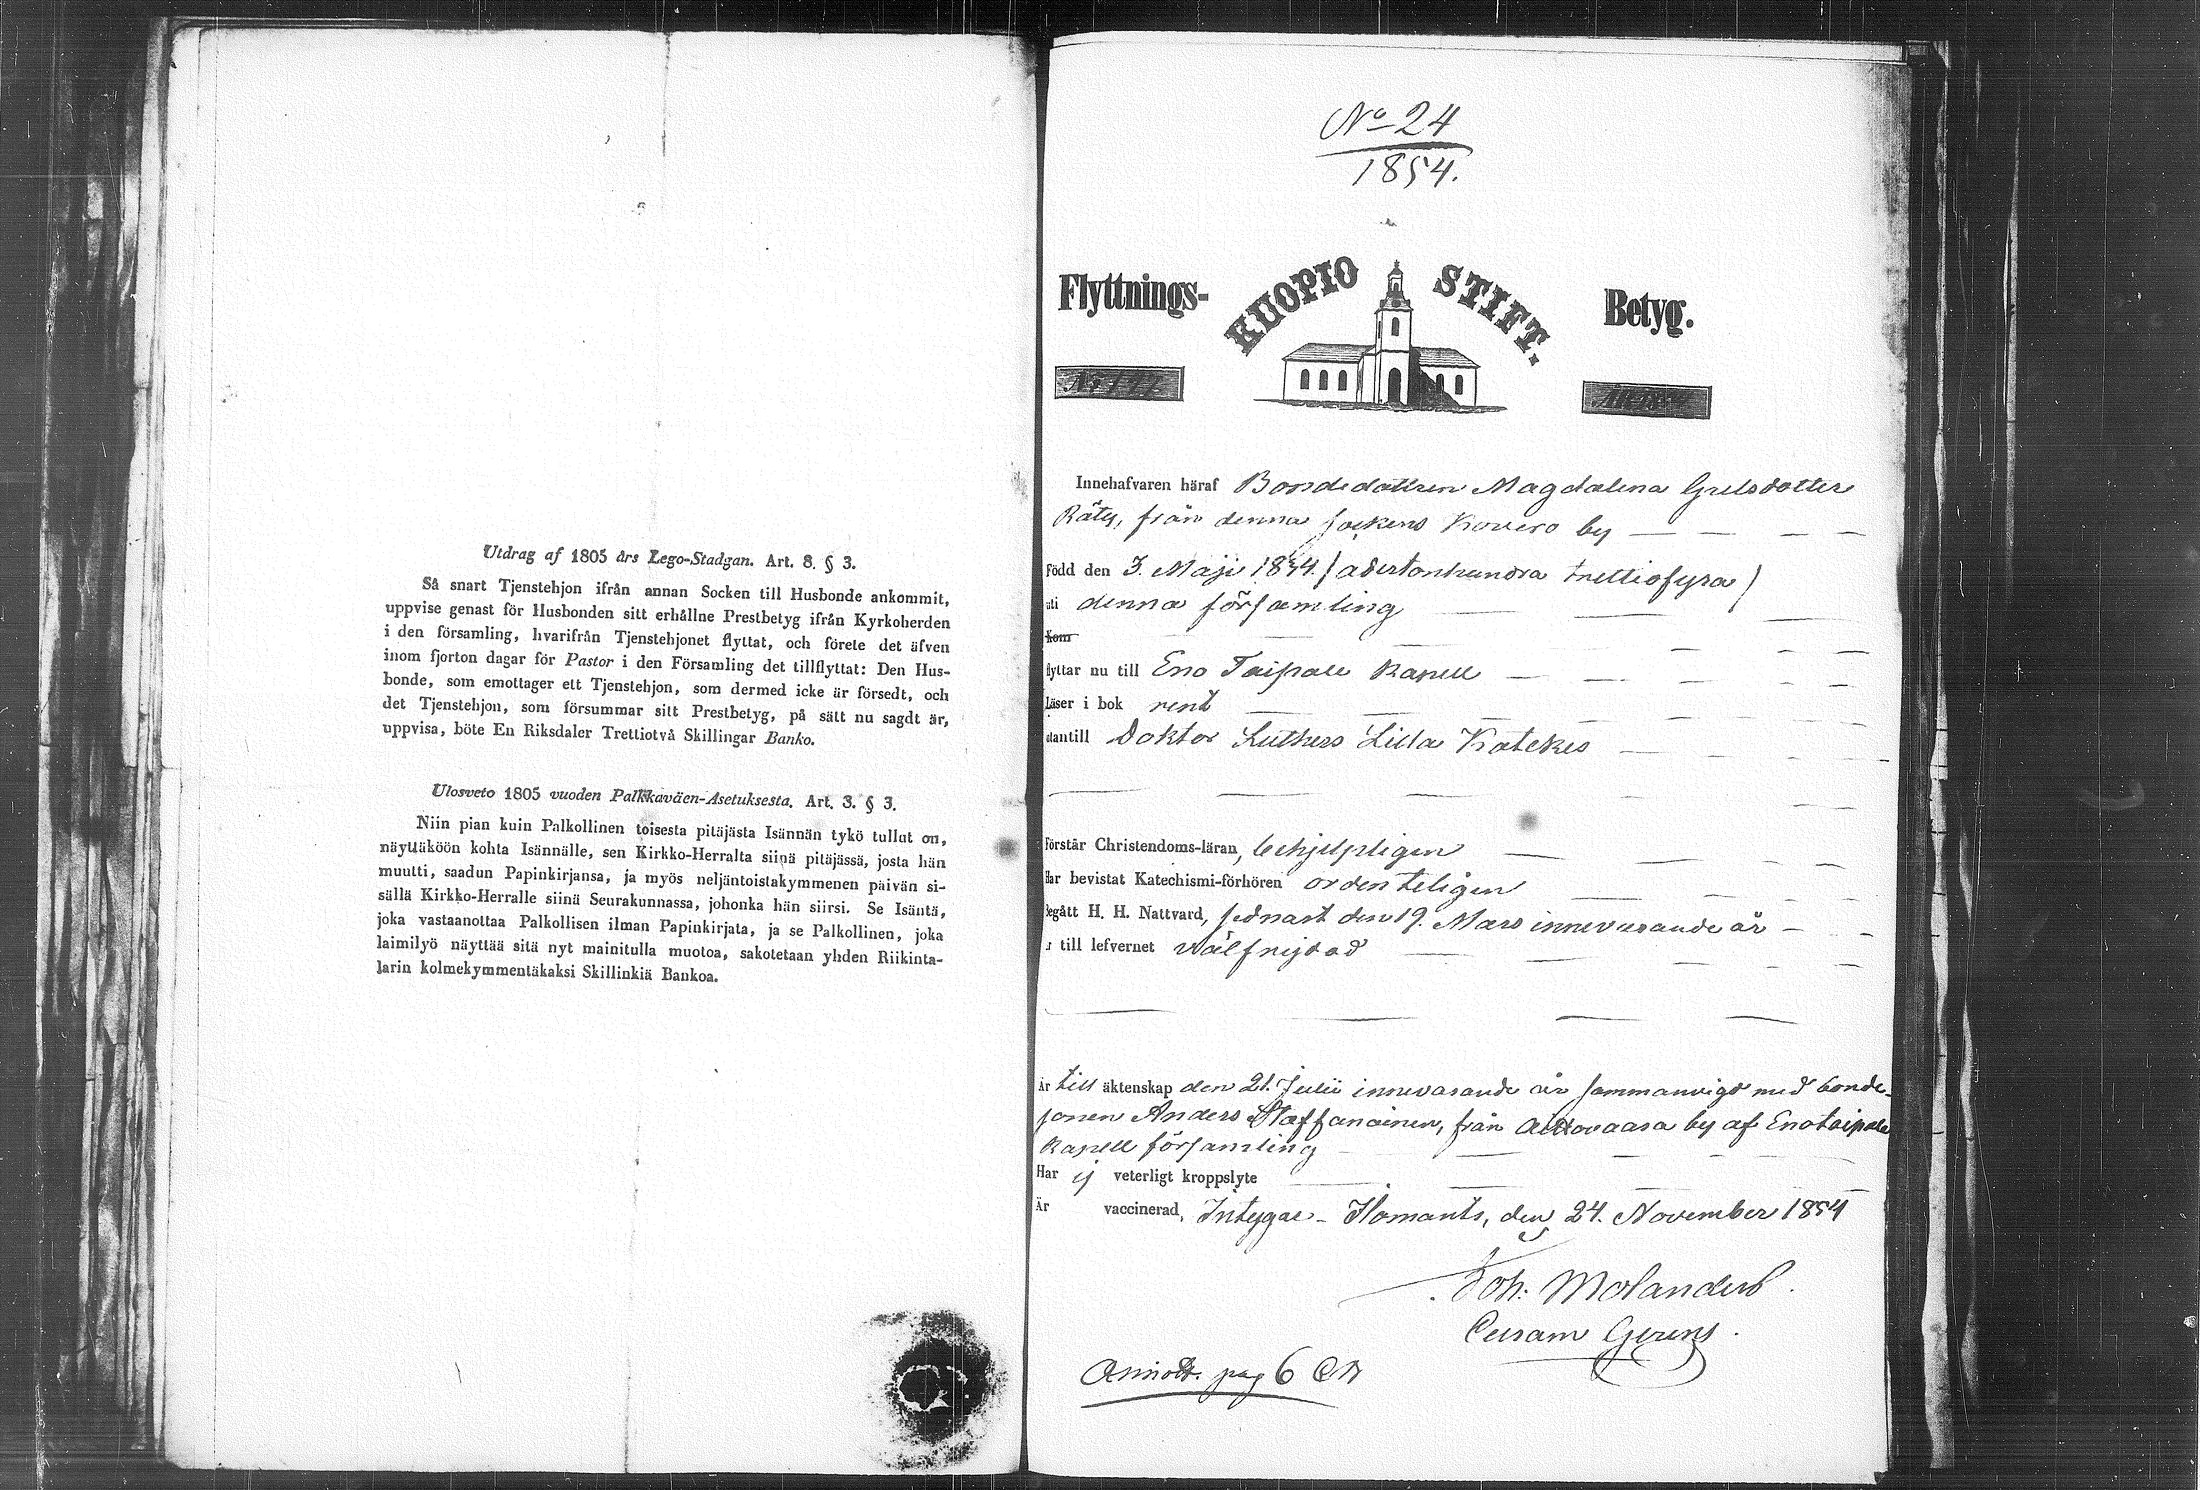 Utdrag af 1805 års Lego-Stadgan. Art. 8. § 3.
Så snart Tjenstehjon ifrån annan Socken till Husbonde ankommit,
uppvise genast för Husbonden sitt erhållne Prestbetyg ifrån Kyrkoherden
i den församling, hvarifrån Tjenstehjonet flyttat, och förete det äfven
inom fjorton dagar för Pastor i den Församling det tillflyttat: Den Hus-
bonde, som emottager ett Tjenstehjon, som dermed icke är försedt, och
det Tjenstehjon, som försummar sitt Prestbetyg, på sätt nu sagdt är,
uppvisa, böte En Riksdaler Trettiotvå Skillingar Banko.
Ulosveto 1805 vuoden Palkkaväen-Asetuksesta. Art. 3. § 3.
Niin pian kuin Palkollinen toisesta pitäjästa Isännän tykö tullut on,
näyttäköön kohta Isännälle, sen Kirkko-Herralta siinä pitäjässä, josta hän
muutti, saadun Papinkirjansa, ja myös neljäntoistakymmenen päivän si-
sällä Kirkko-Herralle siinä Seurakunnassa, johonka hän siirsi. Se Isäntä,
joka vastaanottaa Palkollisen ilman Papinkirjata, ja se Palkollinen, joka
laimilyö näyttää sitä nyt mainitulla muotoa, sakotetaan yhden Riikinta-
larin kolmekymmentäkaksi Skillinkiä Bankoa.
No 24
1854.
Flyttnings- KUOPIO STIFT. Betyg.
Innehafvaren häraf Bondedottren Magdalena Grelsdotter
Räty, från denna sockens Kovero by
Född den 3. Maji 1834. / adertonhundra trettiofyra /
uti denna församling
Kom
flyttar nu till Eno Taipale Kapell
Läser i bok rent
utantill Doktor Luthers Lilla Katekes
Förstår Christendoms-läran, behjelpligen
Har bevistat Katechismi-förhören ordenteligen
Begått H. H. Nattvard, sednast den 19. Mars innevarande år
r till lefvernet välfrejdad
Är till äktenskap den 21. Julii innevarande år sammanvigd med bonde-
sonen Anders Staffanainen, från by af Enotaipale
Kapell församling
Har ej veterligt kroppslyte
Är vaccinerad, Intygar Ilomants, den 24. November 1854
Joh: Molander
Curam Gerens.
Annott. pag 6